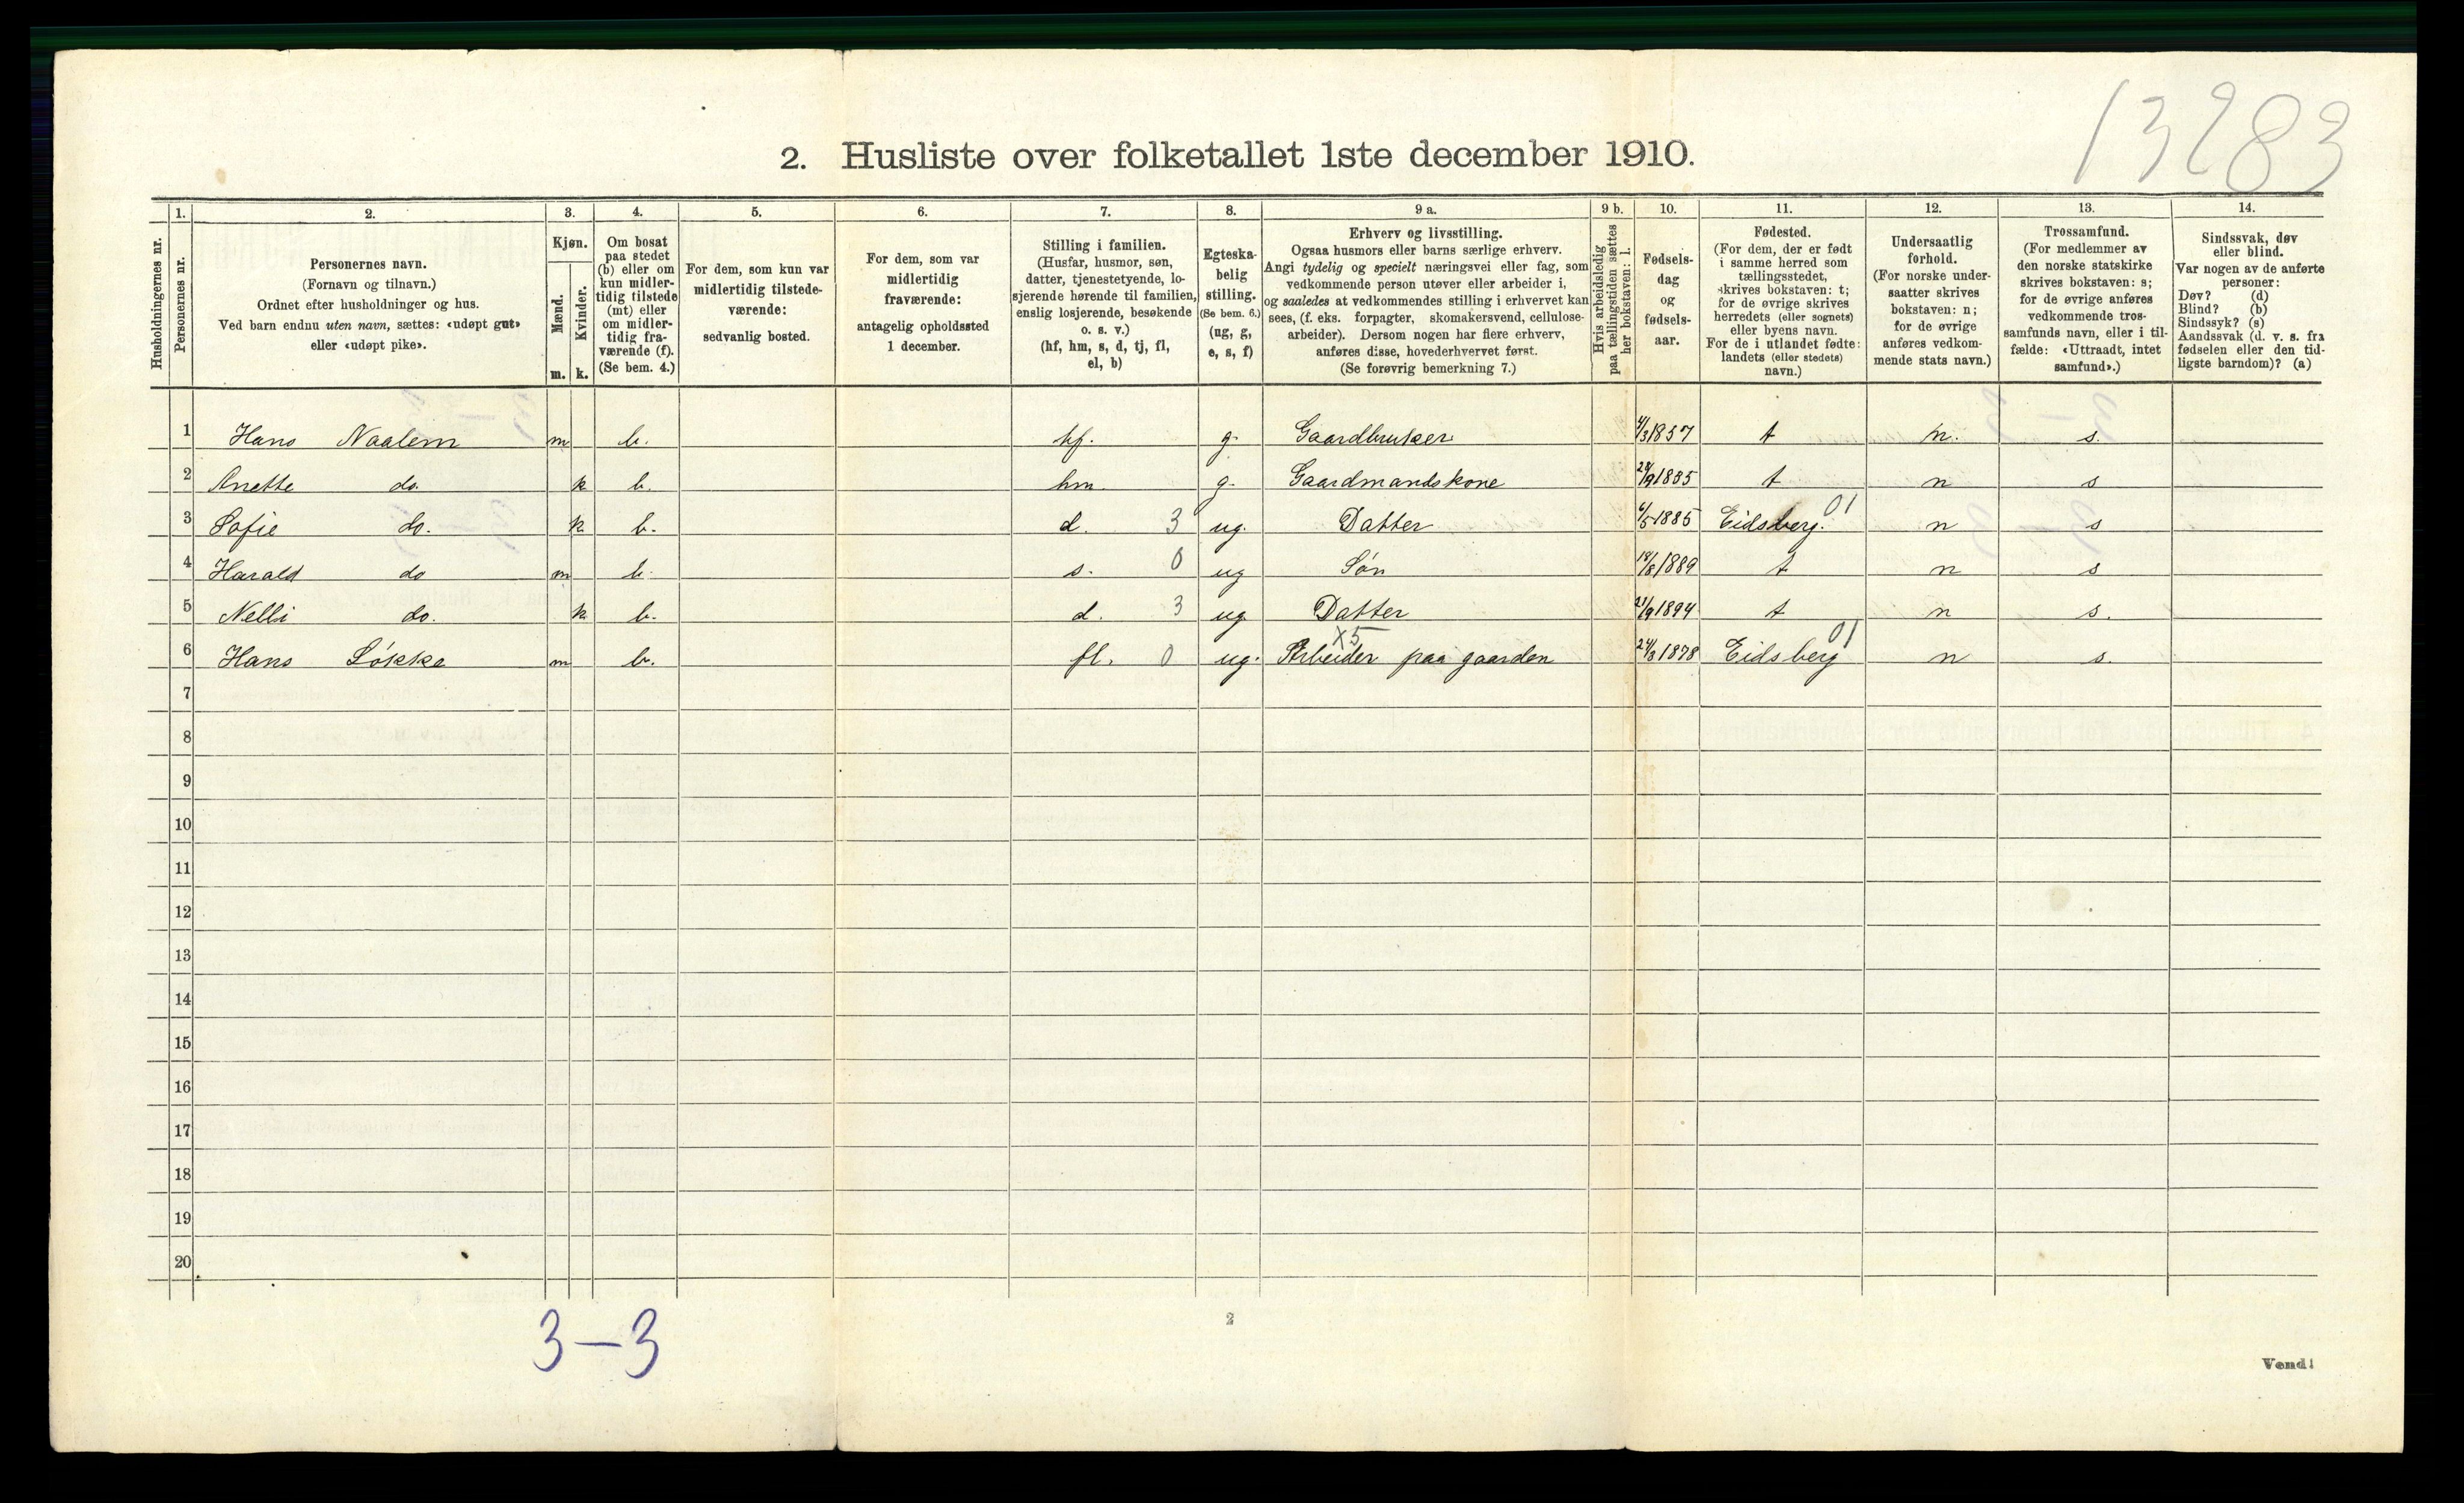 13283
2. Husliste over folketallet 1ste december 1910.
1. 2. 3. 4. 5. 6. 7. 8. 9 a. 9 b. 10. 11. 12. 13. 14.
Husholdningernes nr.
Personernes nr.
Personernes navn.
(Fornavn og tilnavn.)
Ordnet efter husholdninger og hus.
Ved barn endnu uten navn, sættes: «udøpt gut»
eller «udøpt pike».
Kjøn.
Mænd.
Kvinder.
m. k.
Om bosat
paa stedet
(b) eller om
kun midler-
tidig tilstede
(mt) eller
om midler-
tidig fra-
værende (f).
(Se bem. 4.)
For dem, som kun var
midlertidig tilstede-
værende:
sedvanlig bosted.
For dem, som var
midlertidig
fraværende:
antagelig opholdssted
1 december.
Stilling i familien.
(Husfar, husmor, søn,
datter, tjenestetyende, lo-
sjerende hørende til familien,
enslig losjerende, besøkende
o. s. v.)
(hf, hm, s, d, tj, fl,
el, b)
Egteska-
belig
stilling.
(Se bem. 6.)
(ug, g,
e, s, f)
Erhverv og livsstilling.
Ogsaa husmors eller barns særlige erhverv.
Angi tydelig og specielt næringsvei eller fag, som
vedkommende person utøver eller arbeider i,
og saaledes at vedkommendes stilling i erhvervet kan
sees, (f. eks. forpagter, skomakersvend, cellulose-
arbeider). Dersom nogen har flere erhverv,
anføres disse, hovederhvervet først.
(Se forøvrig bemerkning 7.)
Hvis arbeidsledig
paa tællingstiden sættes
her bokstaven: l.
Fødsels-
dag
og
fødsels-
aar.
Fødested.
(For dem, der er født
i samme herred som
tællingsstedet,
skrives bokstaven: t;
for de øvrige skrives
herredets (eller sognets)
eller byens navn.
For de i utlandet fødte:
landets (eller stedets)
navn.)
Undersaatlig
forhold.
(For norske under-
saatter skrives
bokstaven: n;
for de øvrige
anføres vedkom-
mende stats navn.)
Trossamfund.
(For medlemmer av
den norske statskirke
skrives bokstaven: s;
for de øvrige anføres
vedkommende tros-
samfunds navn, eller i til-
fælde: «Uttraadt, intet
samfund».)
Sindssvak, døv
eller blind.
Var nogen av de anførte
personer:
Døv? (d)
Blind? (b)
Sindssyk? (s)
Aandssvak (d. v. s. fra
fødselen eller den tid-
ligste barndom)? (a)
1 Hans Naalem m b. hf. g. Gaardbruker 4/3 1857 t n. s.
2 Anette do. k b. hm. g. Gaardmandskone t n s
3 Sofie do. k b. d. 3 ug. Datter 6/5 1885 Eidsberg. 01 n s
4 Harald do m b. s. 0 ug Søn 18/8 1889 t n s
5 Nelli do. k b. d. 3 ug Datter 21/9 1894 t n s.
6 Hans Løkke m b. fl. 0 ug. Arbeider paa gaarden x5 24/3 1878 Eidsberg 01 n s.
7
8
9
10
11
12
13
14
15
16
17
18
19
20
3–3
2
Vend!